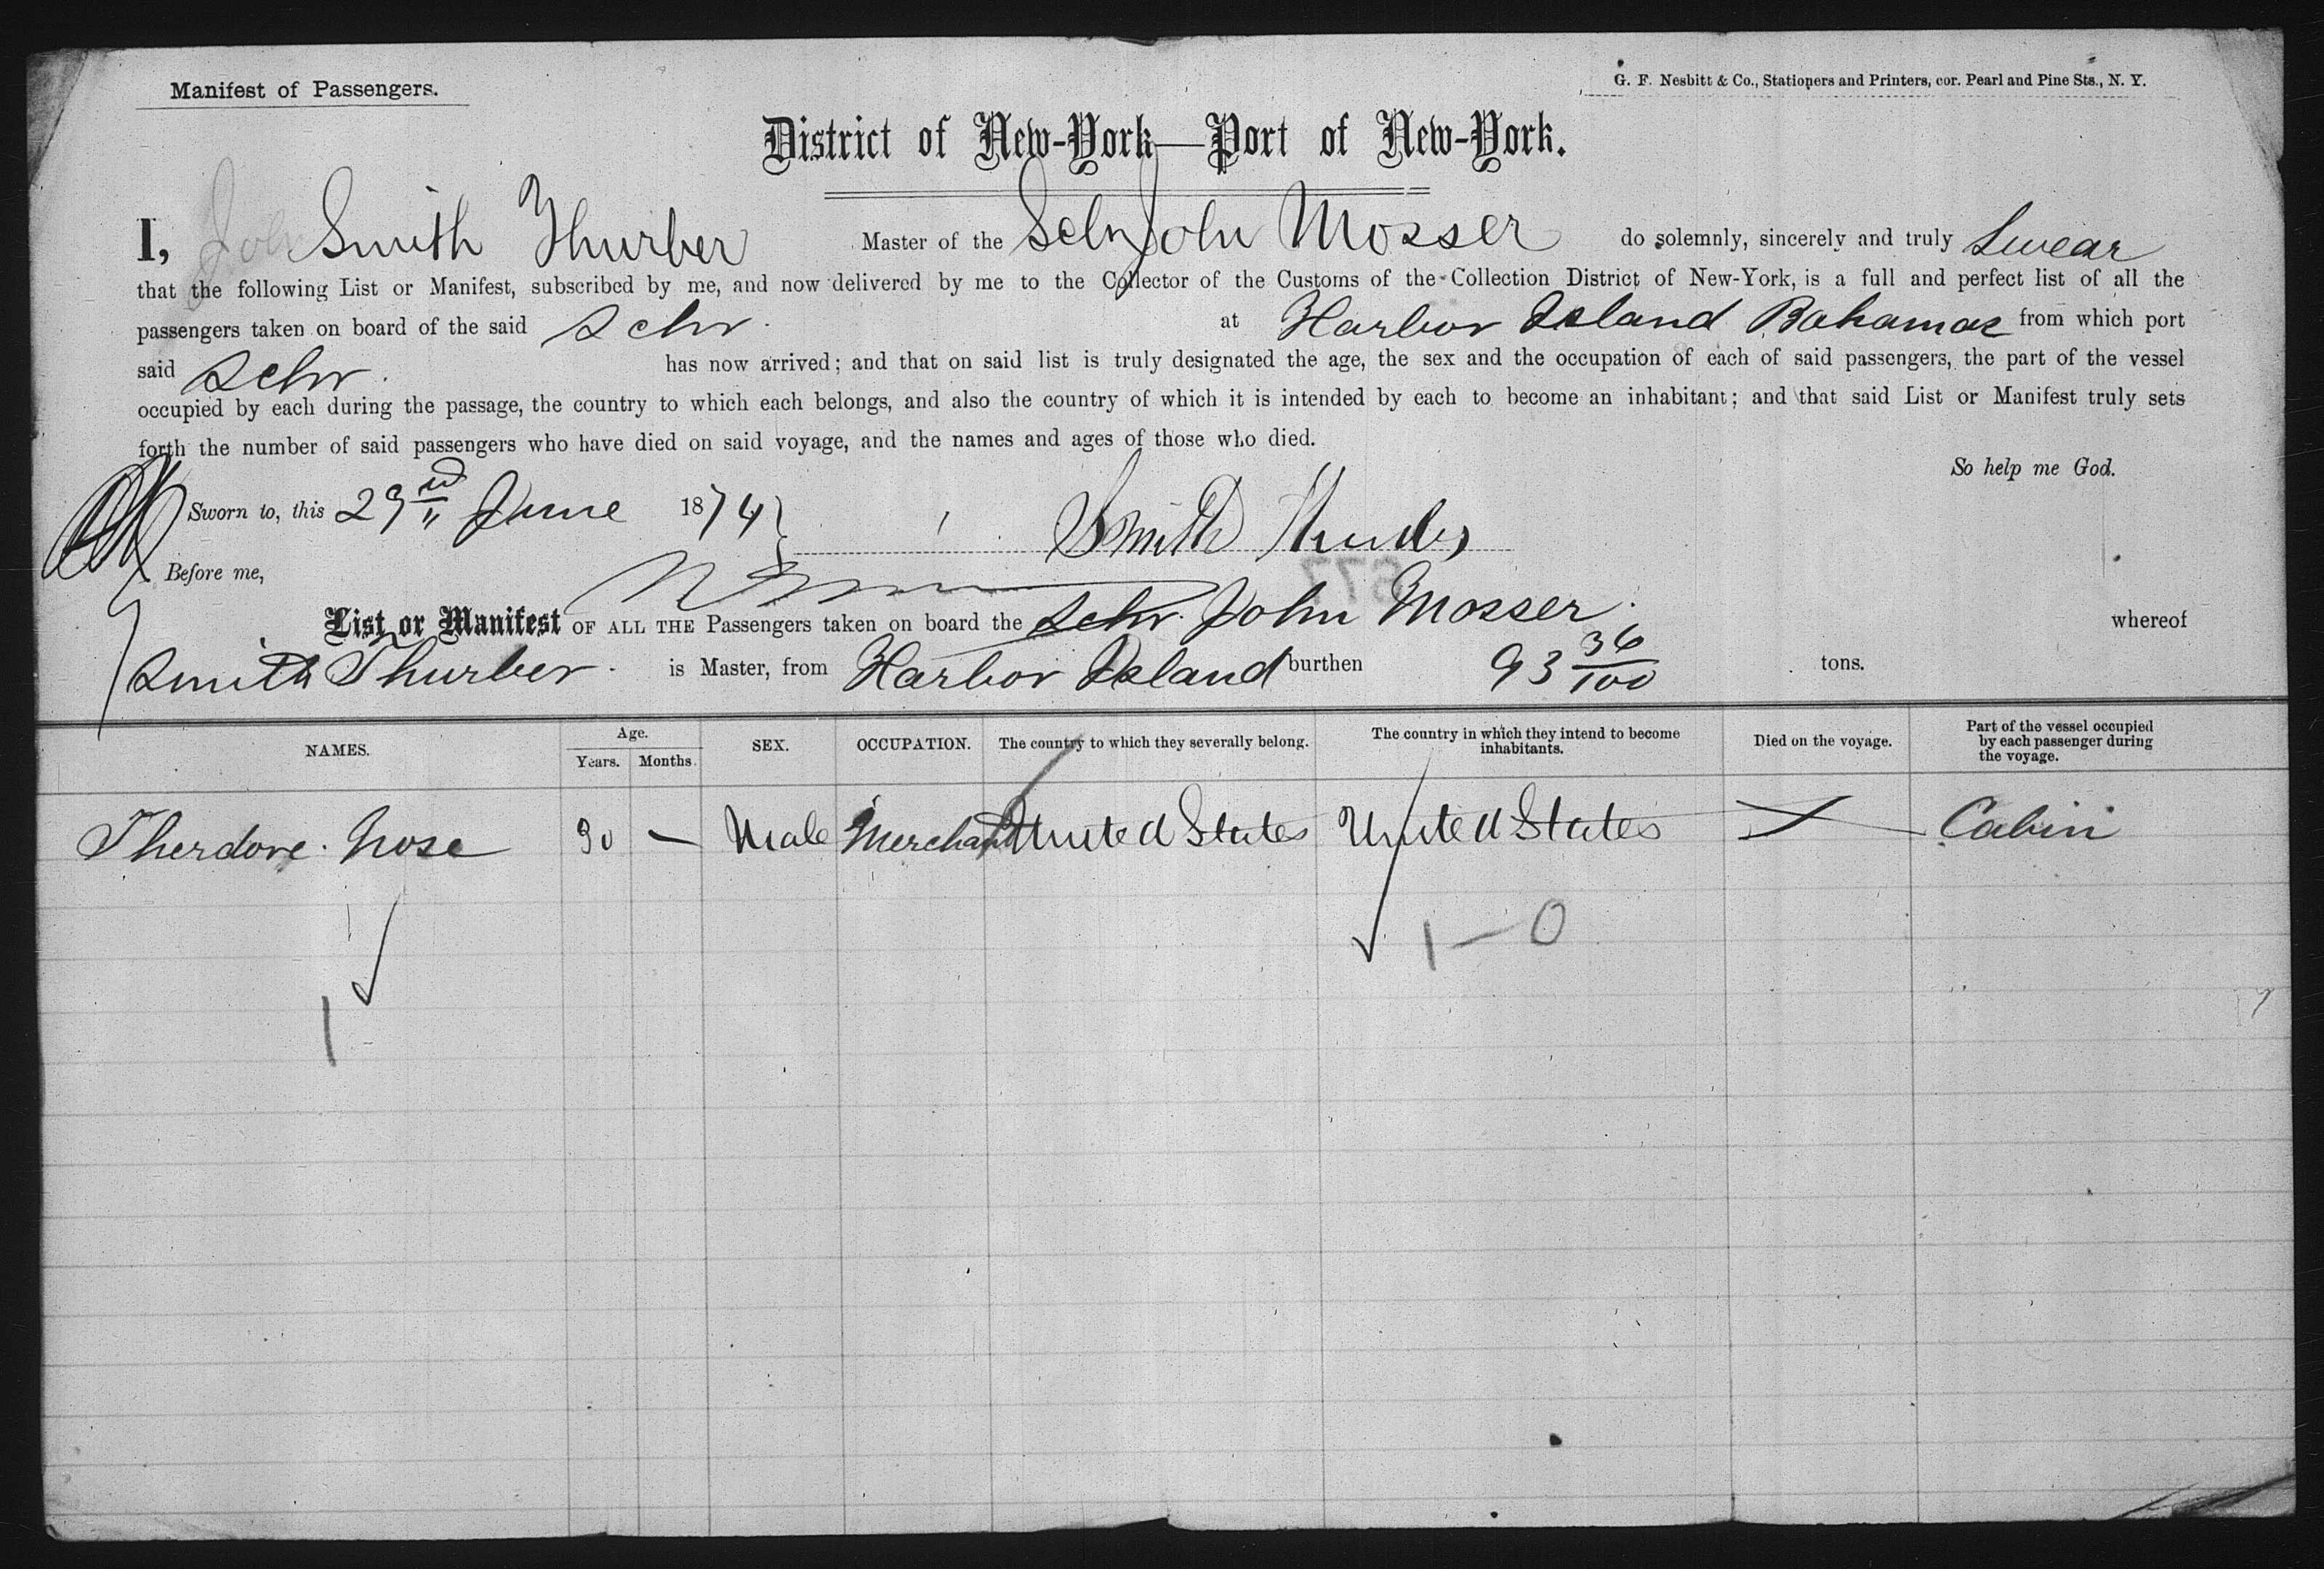 Manifest of Passengers.
G. F. Nesbitt & Co., Stationers and Printers, cor. Pearl and Pine Sts., N. Y.
District of New-York—Port of New-York.
I, Smith Thurber Master of the Schr John Mosser do solemnly, sincerely and truly Swear
that the following List or Manifest, subscribed by me, and now delivered by me to the Collector of the Customs of the Collection District of New-York, is a full and perfect list of all the
passengers taken on board of the said Schr. at Harbor Island Bahamas from which port
said Schr. has now arrived; and that on said list is truly designated the age, the sex and the occupation of each of said passengers, the part of the vessel
occupied by each during the passage, the country to which each belongs, and also the country of which it is intended by each to become an inhabitant; and that said List or Manifest truly sets
forth the number of said passengers who have died on said voyage, and the names and ages of those who died.
So help me God.
Sworn to, this 29 June 1874 Smith Thurber
Before me,
677
List or Manifest OF ALL THE Passengers taken on board the Schr. John Mosser. whereof
Smith Thurber is Master, from Harbor Island burthen 93 36/100 tons.
NAMES. Age. Years. Months. SEX. OCCUPATION. The country to which they severally belong. The country in which they intend to become inhabitants. Died on the voyage. Part of the vessel occupied by each passenger during the voyage.
Therdore. Nose 30 — Male Merchant United States United States Cabin
1 — 0
1